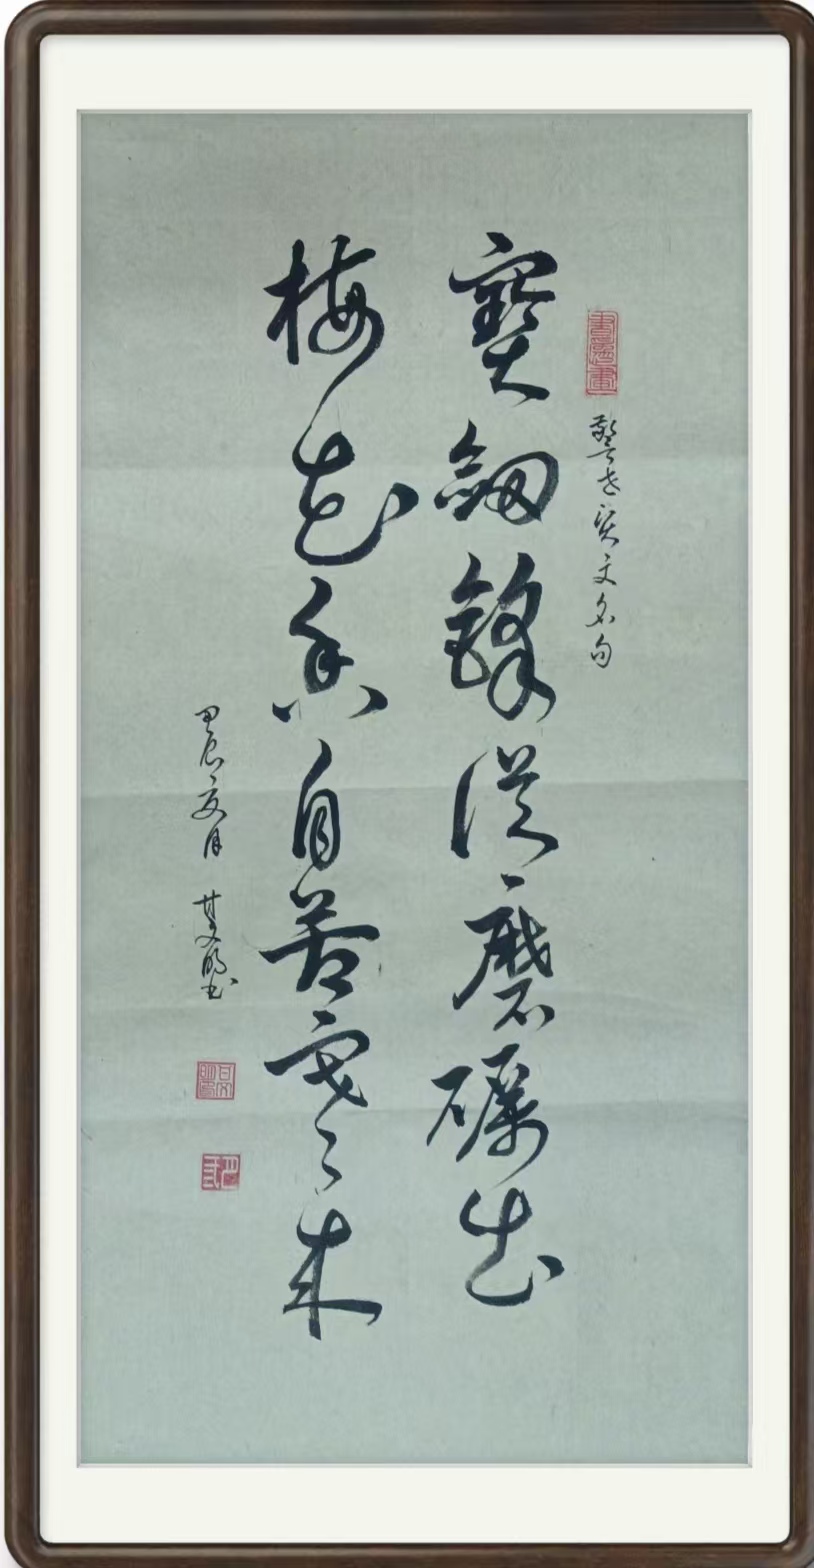 警世贤文名句
寶劍鋒從磨礪出
梅花香自苦寒来
甲辰夏月 甘文明书